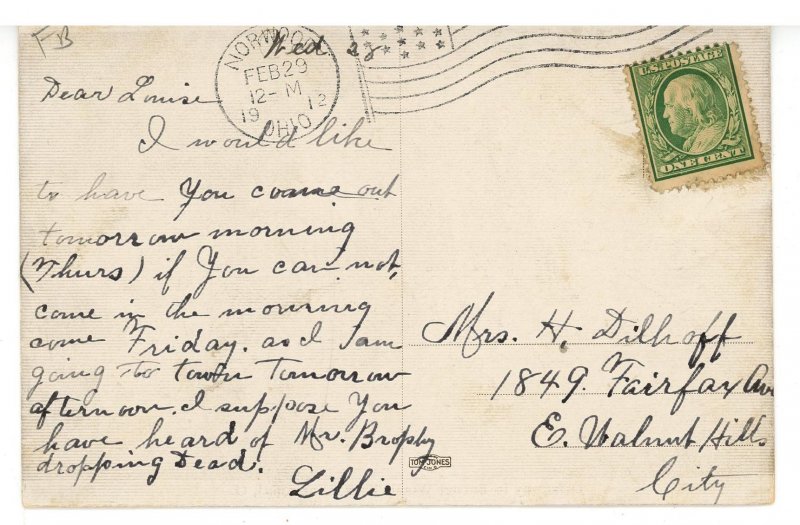 FB
Wed 28
NORWOOD
FEB 29
12-M
1912
OHIO
U.S. POSTAGE
ONE CENT
Dear Louise
I would like
to have You come out
tomorrow morning
(Thurs) if You can not,
come in the morning
come Friday. as I am
going to town tomorrow
afternoon. I suppose You
have heard of Mr. Brophy
dropping Dead.
Lillie
Mrs. H. Dilhoff
1849 Fairfax Ave
E. Walnut Hills
City
TOM JONES